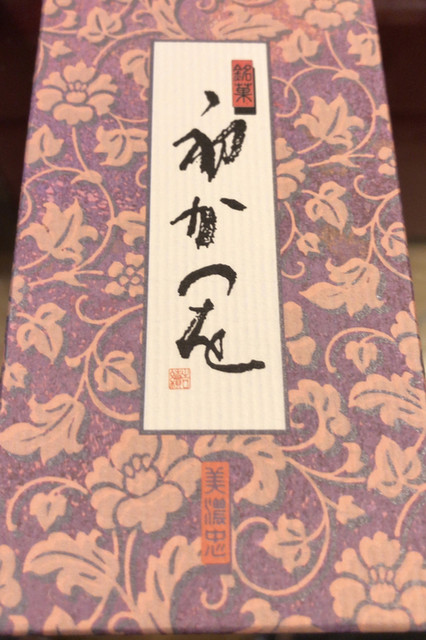 銘菓
初かつを
美濃忠